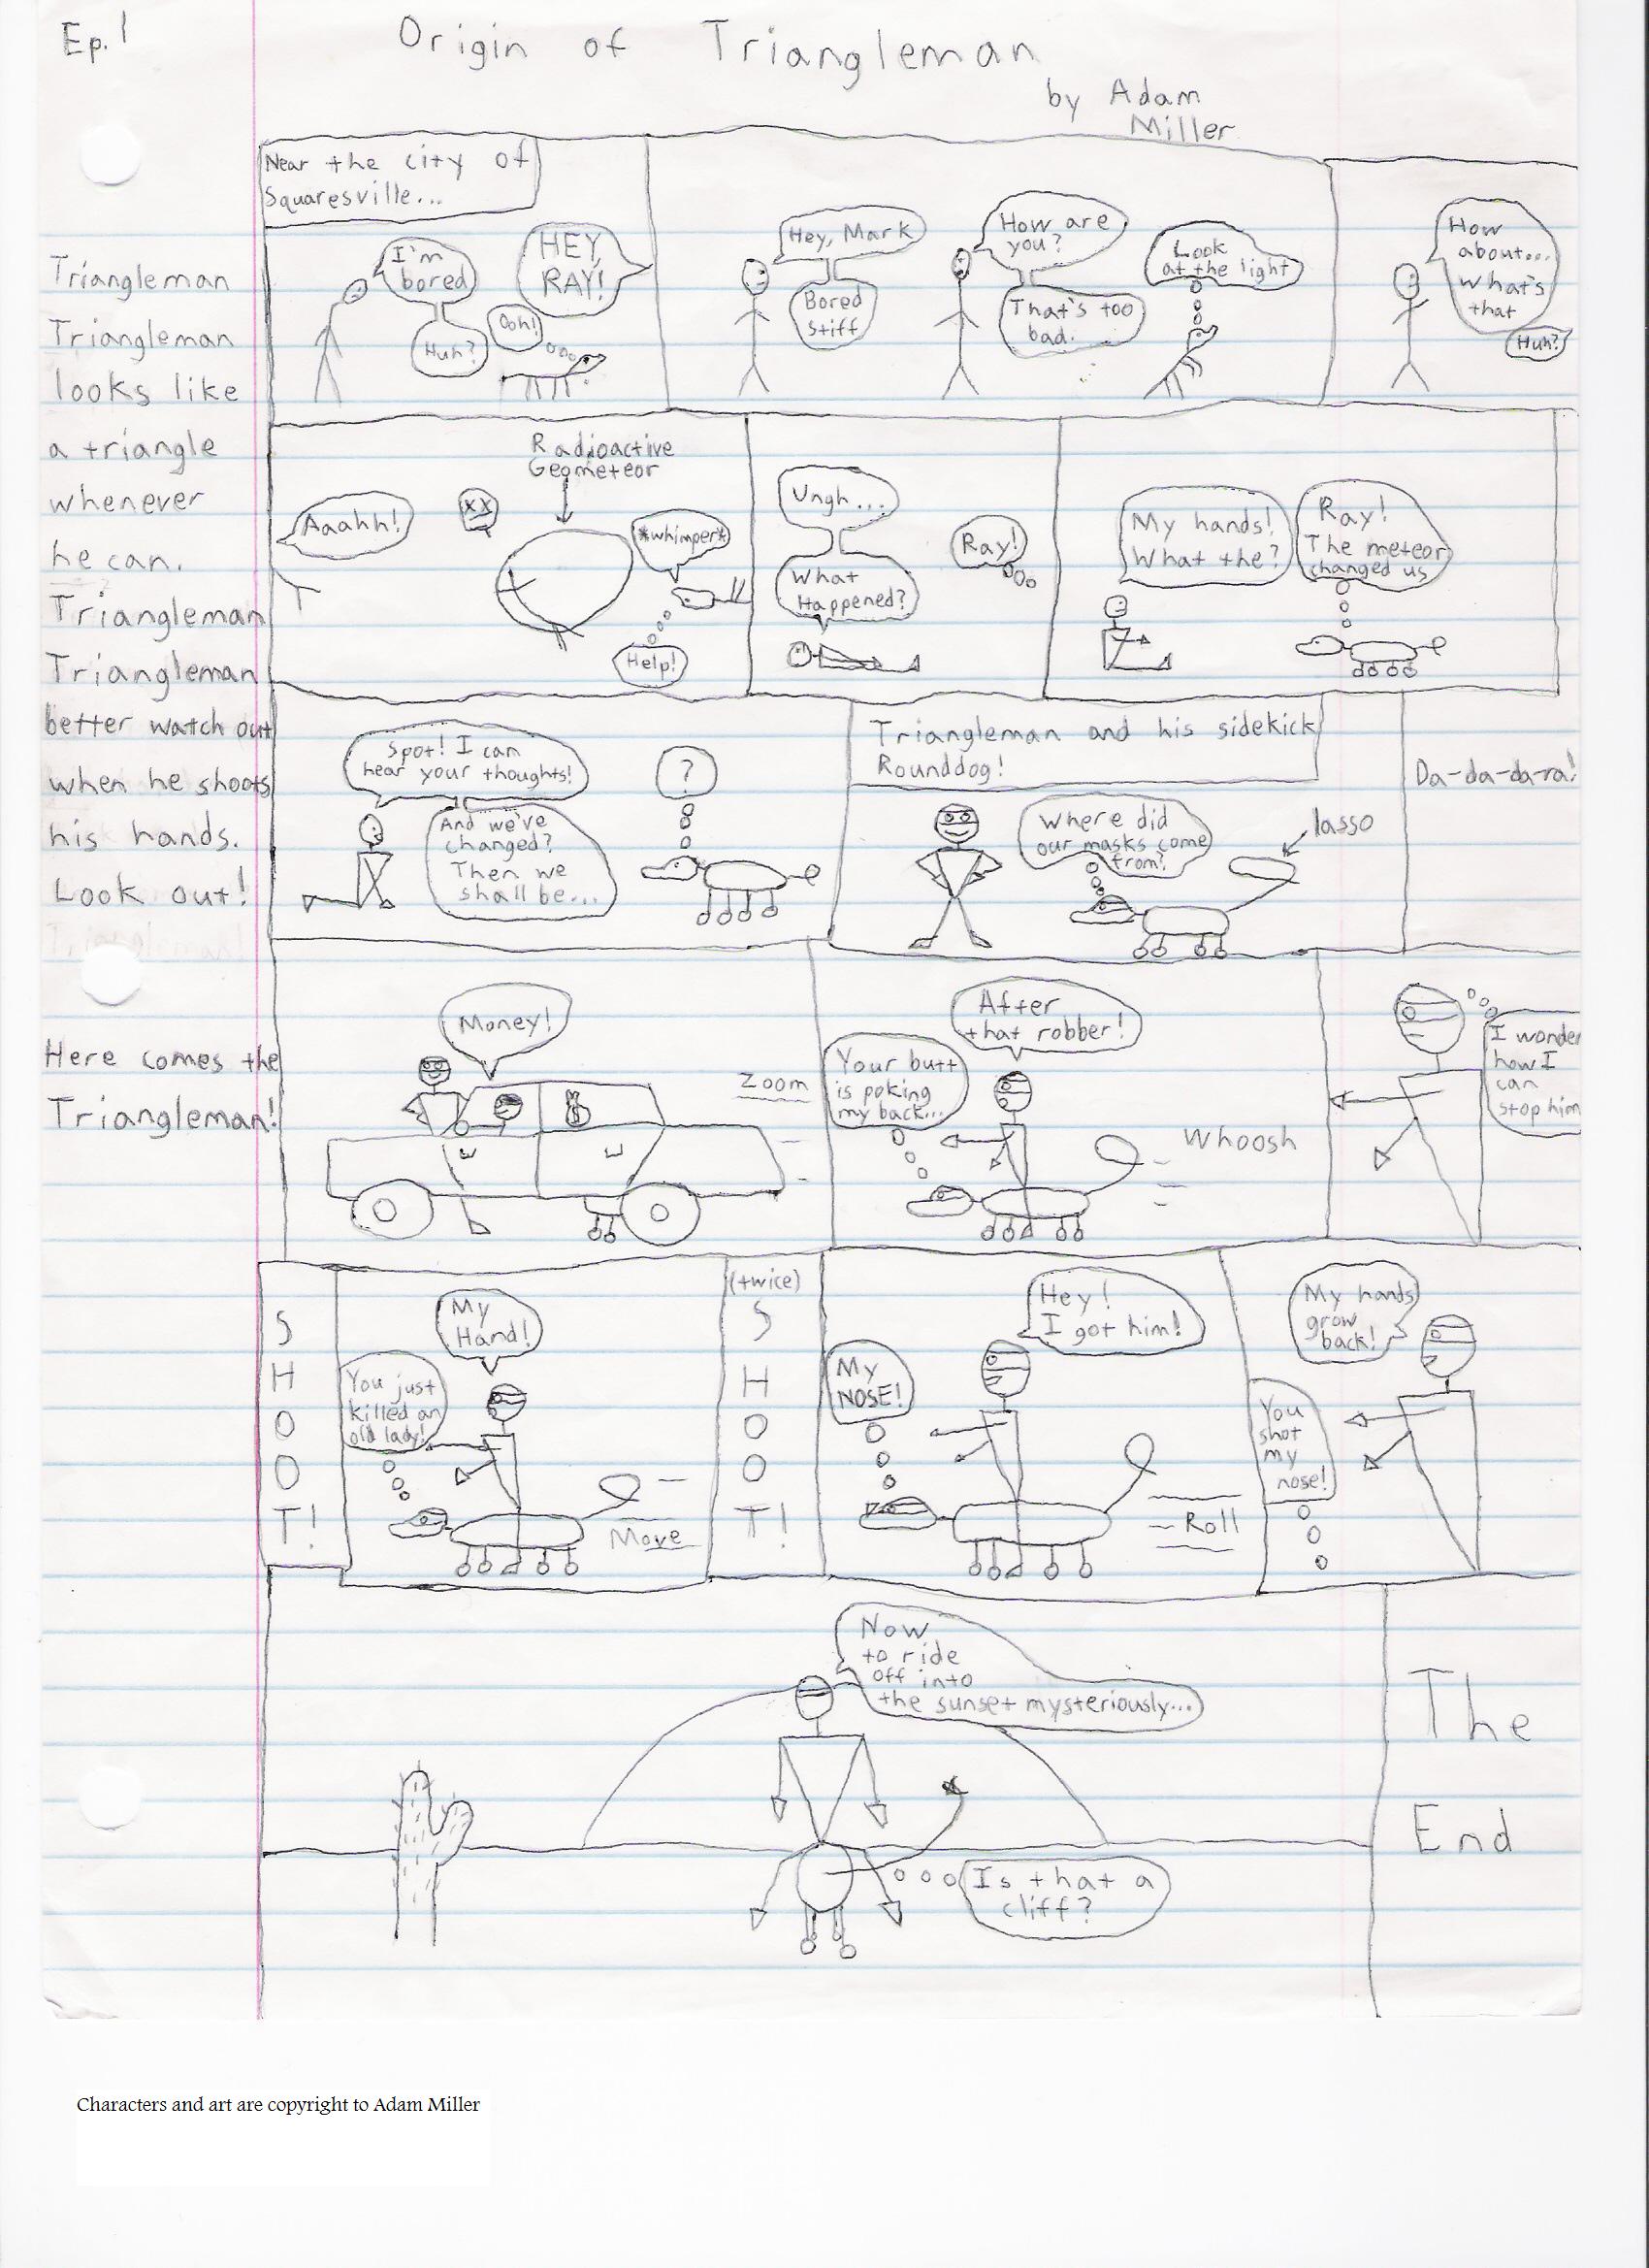 Ep. 1
Origin of Triangleman
by Adam
Miller
Triangleman
Triangleman
looks like
a triangle
whenever
he can.
Triangleman
Triangleman
better watch out
when he shoots
his hands.
Look out!
Here comes the
Triangleman!
Near the city of
Squaresville...
I'm
bored
Huh?
Ooh!
HEY,
RAY!
Hey, Mark
Bored
stiff
How are
you?
That's too
bad.
Look
at the light
How
about...
What's
that
Huh?
Aaahh!
XX
Radioactive
Geometeor
*whimper*
Help!
Ungh...
What
Happened?
Ray!
My hands!
What the?
Ray!
The meteor
changed us
Spot! I can
hear your thoughts!
And we've
changed?
Then we
shall be...
?
Triangleman and his sidekick
Rounddog!
Where did
our masks come
from?
lasso
Da-da-da-ra!
Money!
Zoom
After
that robber!
Your butt
is poking
my back...
Whoosh
I wonder
how I
can
stop him
SHOOT!
My
Hand!
You just
killed an
old lady!
Move
(twice)
SHOOT!
Hey!
I got him!
My
NOSE!
Roll
My hands
grow
back!
You
shot
my
nose!
Now
to ride
off into
the sunset mysteriously...
Is that a
cliff?
The
End
Characters and art are copyright to Adam Miller